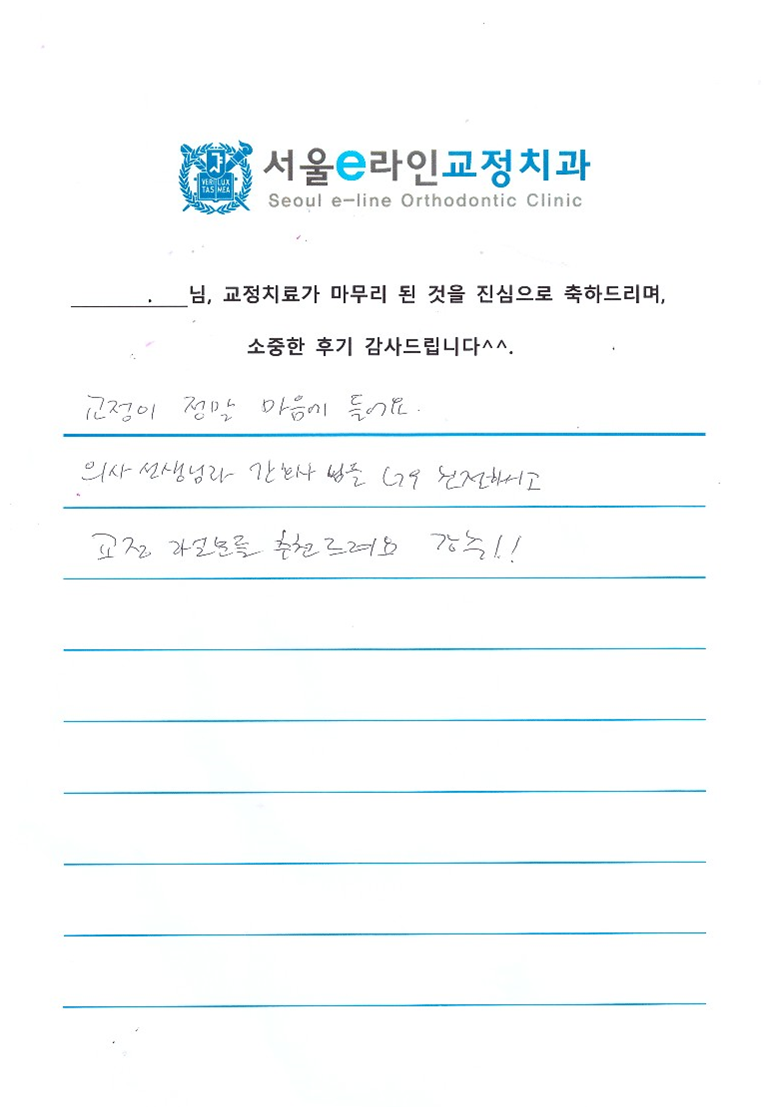 VERI LUX
TAS MEA
서울e라인교정치과
Seoul e-line Orthodontic Clinic
님, 교정치료가 마무리 된 것을 진심으로 축하드리며,
소중한 후기 감사드립니다^^.
교정이 정말 마음에 들어요.
의사선생님과 간호사 분들 너무 친절하시고
교정 추천드려요 강추!!